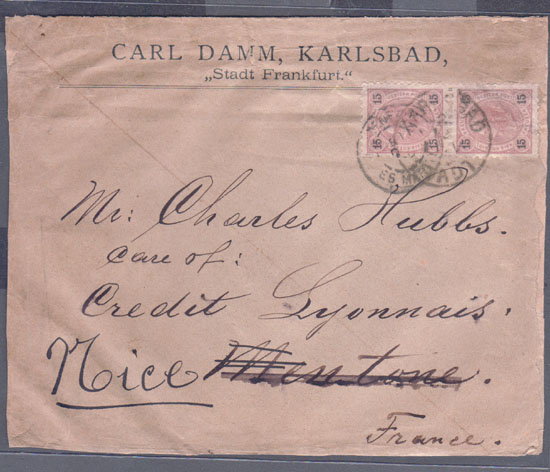 CARL DAMM, KARLSBAD,
„Stadt Frankfurt.“
15 15 15 15
Mr: Charles Hubbs.
Care of:
Credit Lyonnais.
Nice Mentone.
France.